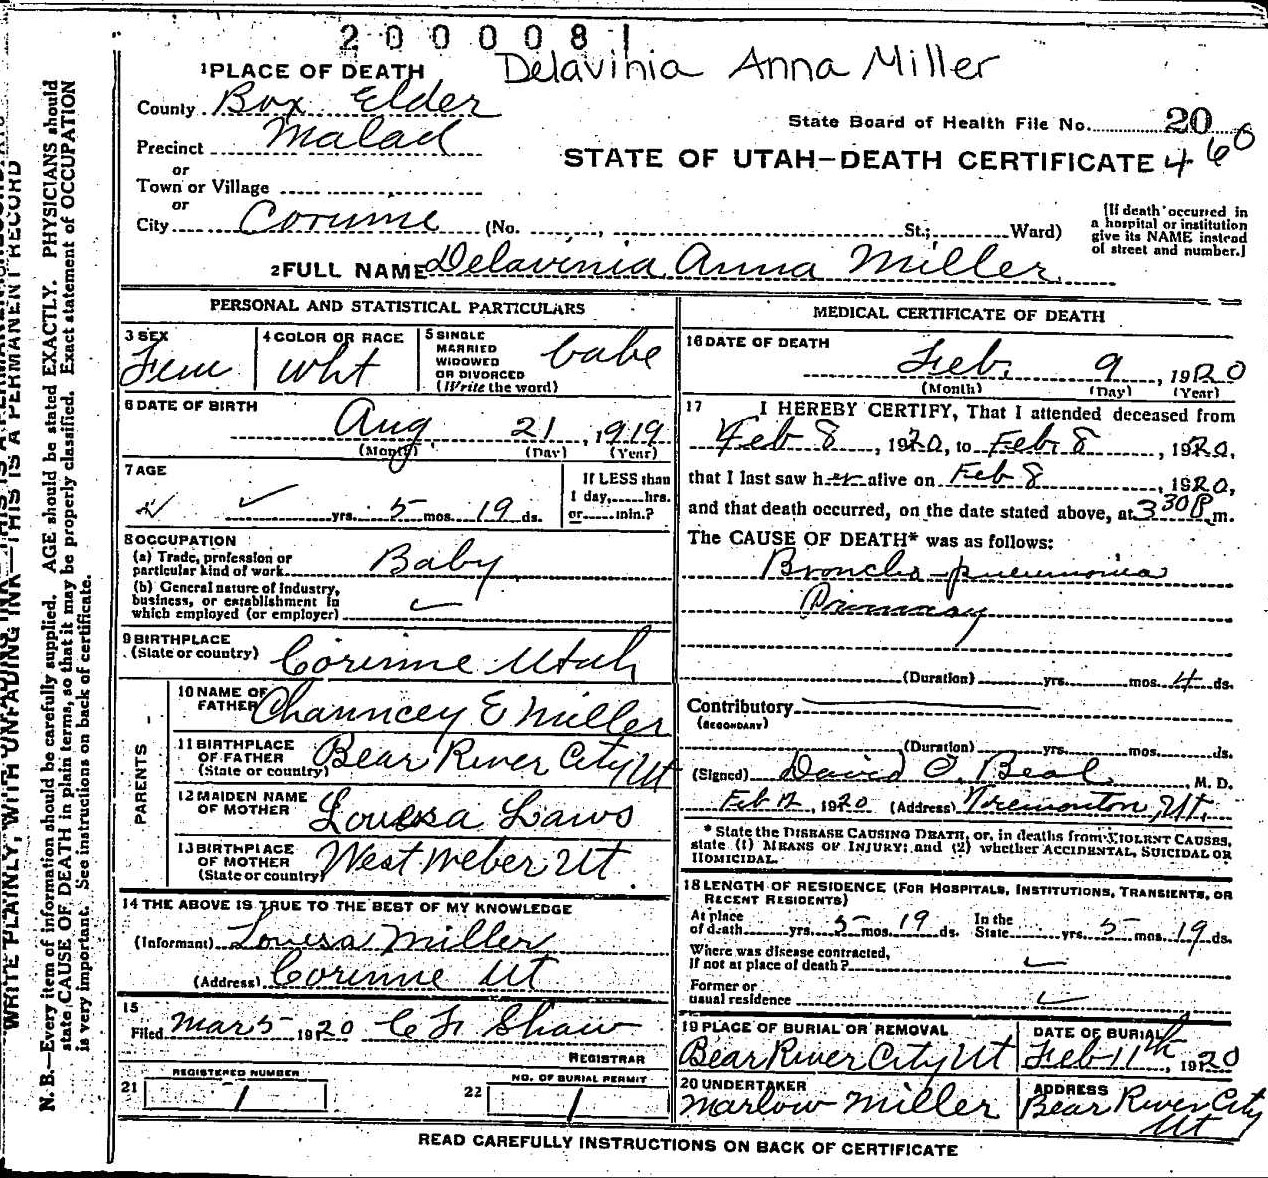 2 0 0 0 0 8 1
1 PLACE OF DEATH Delavinia Anna Miller
County Box Elder
State Board of Health File No. 20 460
Precinct Malad
STATE OF UTAH—DEATH CERTIFICATE
or
Town or Village
or
City Corinne (No. , St.; Ward)
[If death occurred in
a hospital or institution
give its NAME instead
of street and number.]
2 FULL NAME Delavinia Anna Miller
PERSONAL AND STATISTICAL PARTICULARS
3 SEX Fem
4 COLOR OR RACE wht
5 SINGLE
MARRIED
WIDOWED
OR DIVORCED
(Write the word) babe
6 DATE OF BIRTH
Aug 21, 1919
(Month) (Day) (Year)
7 AGE
yrs. 5 mos. 19 ds.
If LESS than
1 day, hrs.
or min.?
8 OCCUPATION
(a) Trade, profession or
particular kind of work Baby
(b) General nature of Industry,
business, or establishment in
which employed (or employer)
9 BIRTHPLACE
(State or country) Corinne Utah
PARENTS
10 NAME OF
FATHER Chauncey E Miller
11 BIRTHPLACE
OF FATHER
(State or country) Bear River City Ut
12 MAIDEN NAME
OF MOTHER Louesa Laws
13 BIRTHPLACE
OF MOTHER
(State or country) West Weber Ut
14 THE ABOVE IS TRUE TO THE BEST OF MY KNOWLEDGE
(Informant) Louesa Miller
(Address) Corinne Ut
15
Filed Mar 5 1920 C F Shaw
REGISTRAR
21 REGISTERED NUMBER
1
22 NO. OF BURIAL PERMIT
1
MEDICAL CERTIFICATE OF DEATH
16 DATE OF DEATH
Feb. 9, 1920
(Month) (Day) (Year)
17 I HEREBY CERTIFY, That I attended deceased from
Feb 8, 1920, to Feb. 8, 1920,
that I last saw her alive on Feb 8, 1920,
and that death occurred, on the date stated above, at 3 30 P. m.
The CAUSE OF DEATH* was as follows:
Broncho-pneumonia
Primary
(Duration) yrs. mos. 4 ds.
Contributory
(SECONDARY)
(Duration) yrs. mos. ds.
(Signed) David O. Beal M. D.
Feb 12, 1920 (Address) Tremonton, Ut.
* State the DISEASE CAUSING DEATH, or, in deaths from VIOLENT CAUSES,
state (1) MEANS OF INJURY; and (2) whether ACCIDENTAL, SUICIDAL OR
HOMICIDAL.
18 LENGTH OF RESIDENCE (FOR HOSPITALS, INSTITUTIONS, TRANSIENTS, OR
RECENT RESIDENTS)
At place
of death yrs. 5 mos. 19 ds. In the
State yrs. 5 mos. 19 ds.
Where was disease contracted,
If not at place of death?
Former or
usual residence
19 PLACE OF BURIAL OR REMOVAL
Bear River City Ut
DATE OF BURIAL
Feb 11th, 1920
20 UNDERTAKER
Marlow Miller
ADDRESS
Bear River City
Ut
READ CAREFULLY INSTRUCTIONS ON BACK OF CERTIFICATE
WRITE PLAINLY, WITH UNFADING INK—THIS IS A PERMANENT RECORD
N. B.—Every item of information should be carefully supplied. AGE should be stated EXACTLY. PHYSICIANS should
state CAUSE OF DEATH in plain terms, so that it may be properly classified. Exact statement of OCCUPATION
is very important. See instructions on back of certificate.